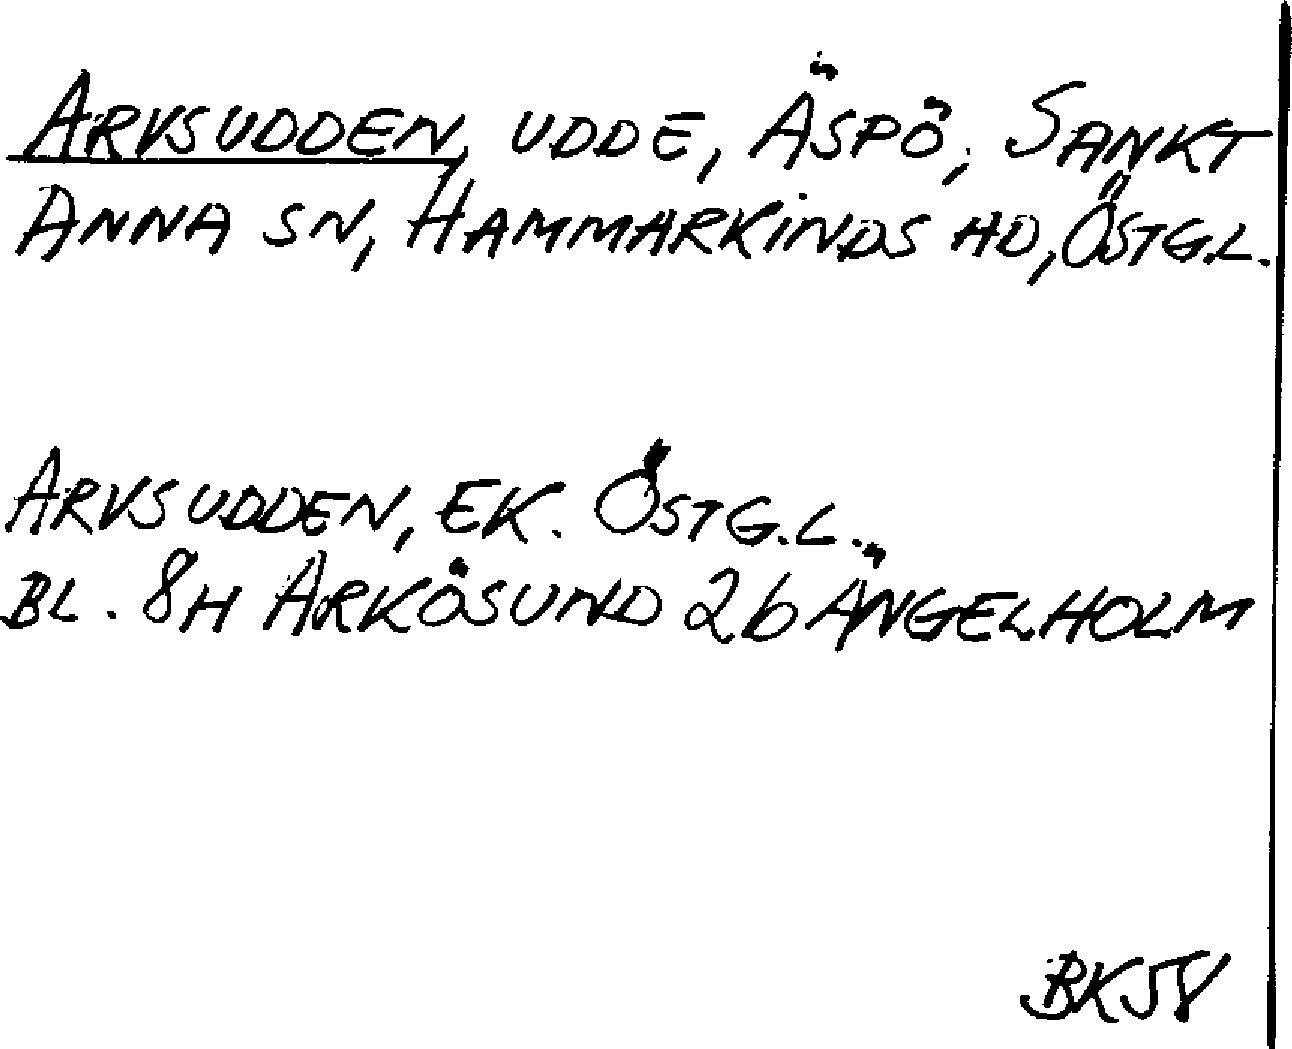 ARVSUDDEN, UDDE, ÄSPÖ, SANKT
ANNA SN, HAMMARKINDS HD, ÖSTG.L.
ARVSUDDEN, EK. ÖSTG.L.
BL. 8H ARKÖSUND 2b ÄNGELHOLM